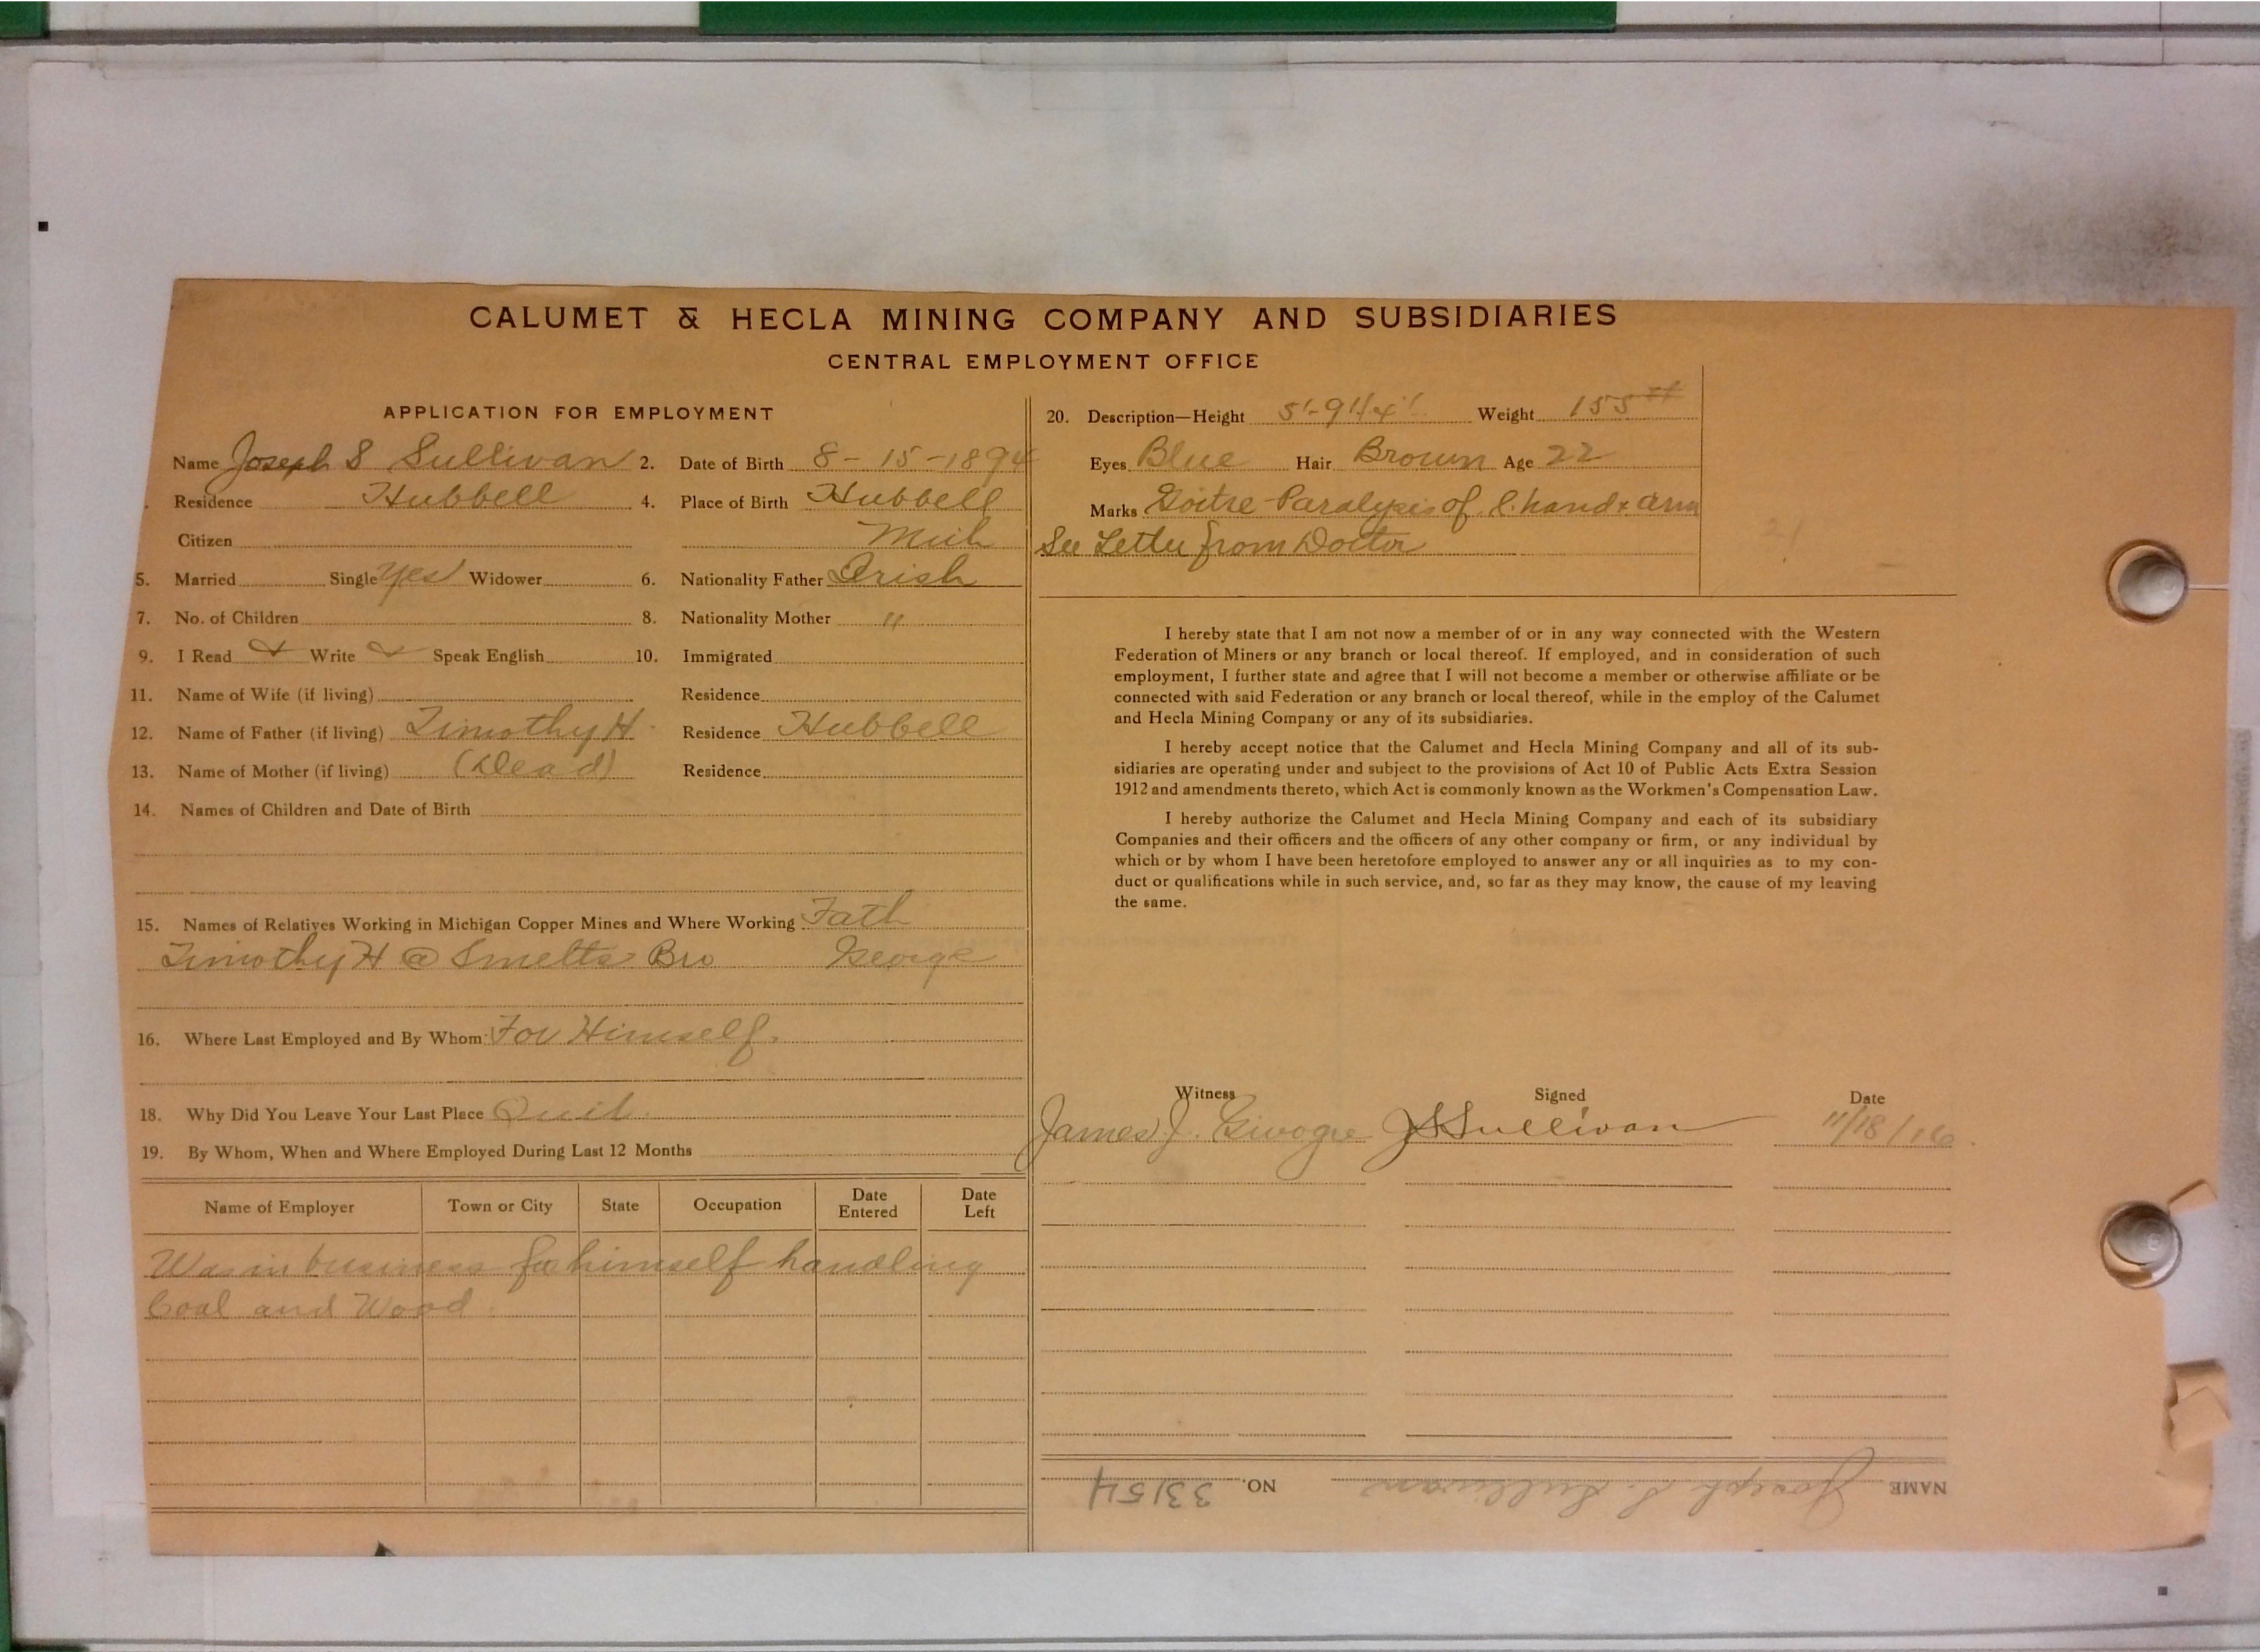 CALUMET & HECLA MINING COMPANY AND SUBSIDIARIES
CENTRAL EMPLOYMENT OFFICE
APPLICATION FOR EMPLOYMENT
Name Joseph S Sullivan 2. Date of Birth 8-15-1894
Residence Hubbell 4. Place of Birth Hubbell
Citizen Mich
5. Married Single Yes Widower 6. Nationality Father Irish
7. No. of Children 8. Nationality Mother "
9. I Read Write Speak English 10. Immigrated
11. Name of Wife (if living) Residence
12. Name of Father (if living) Timothy H Residence Hubbell
13. Name of Mother (if living) (Dead) Residence
14. Names of Children and Date of Birth
15. Names of Relatives Working in Michigan Copper Mines and Where Working Fath
Timothy H @ Smelts Bro George
16. Where Last Employed and By Whom For Himself.
18. Why Did You Leave Your Last Place Quit
19. By Whom, When and Where Employed During Last 12 Months
Name of Employer Town or City State Occupation Date Entered Date Left
Was in business for himself handling
Coal and Wood
20. Description—Height 5'-9 1/4" Weight 155 #
Eyes Blue Hair Brown Age 22
Marks Goitre Paralysis of l. hand & arm
See Letter from Doctor
21
I hereby state that I am not now a member of or in any way connected with the Western
Federation of Miners or any branch or local thereof. If employed, and in consideration of such
employment, I further state and agree that I will not become a member or otherwise affiliate or be
connected with said Federation or any branch or local thereof, while in the employ of the Calumet
and Hecla Mining Company or any of its subsidiaries.
I hereby accept notice that the Calumet and Hecla Mining Company and all of its sub-
sidiaries are operating under and subject to the provisions of Act 10 of Public Acts Extra Session
1912 and amendments thereto, which Act is commonly known as the Workmen's Compensation Law.
I hereby authorize the Calumet and Hecla Mining Company and each of its subsidiary
Companies and their officers and the officers of any other company or firm, or any individual by
which or by whom I have been heretofore employed to answer any or all inquiries as to my con-
duct or qualifications while in such service, and, so far as they may know, the cause of my leaving
the same.
Witness Signed Date
James J. J S Sullivan 11/18/16.
NAME Joseph S. Sullivan NO. 33154